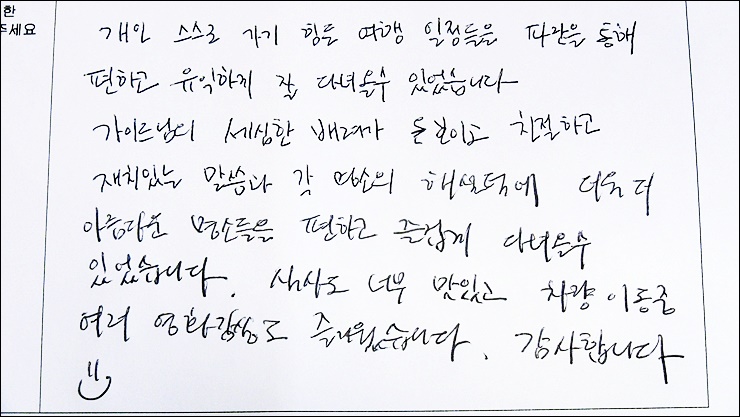 한
주세요
개인 스스로 가기 힘든 여행 일정들을 파란을 통해
편하고 유익하게 잘 다녀올수 있었습니다
가이드님의 세심한 배려가 돋보이고 친절하고
재치있는 말씀과 각 명소의 해설덕에 더욱 더
아름다운 명소들을 편하고 즐겁게 다녀올수
있었습니다. 식사도 너무 맛있고 차량 이동중
여러 영화감상도 즐거웠습니다. 감사합니다